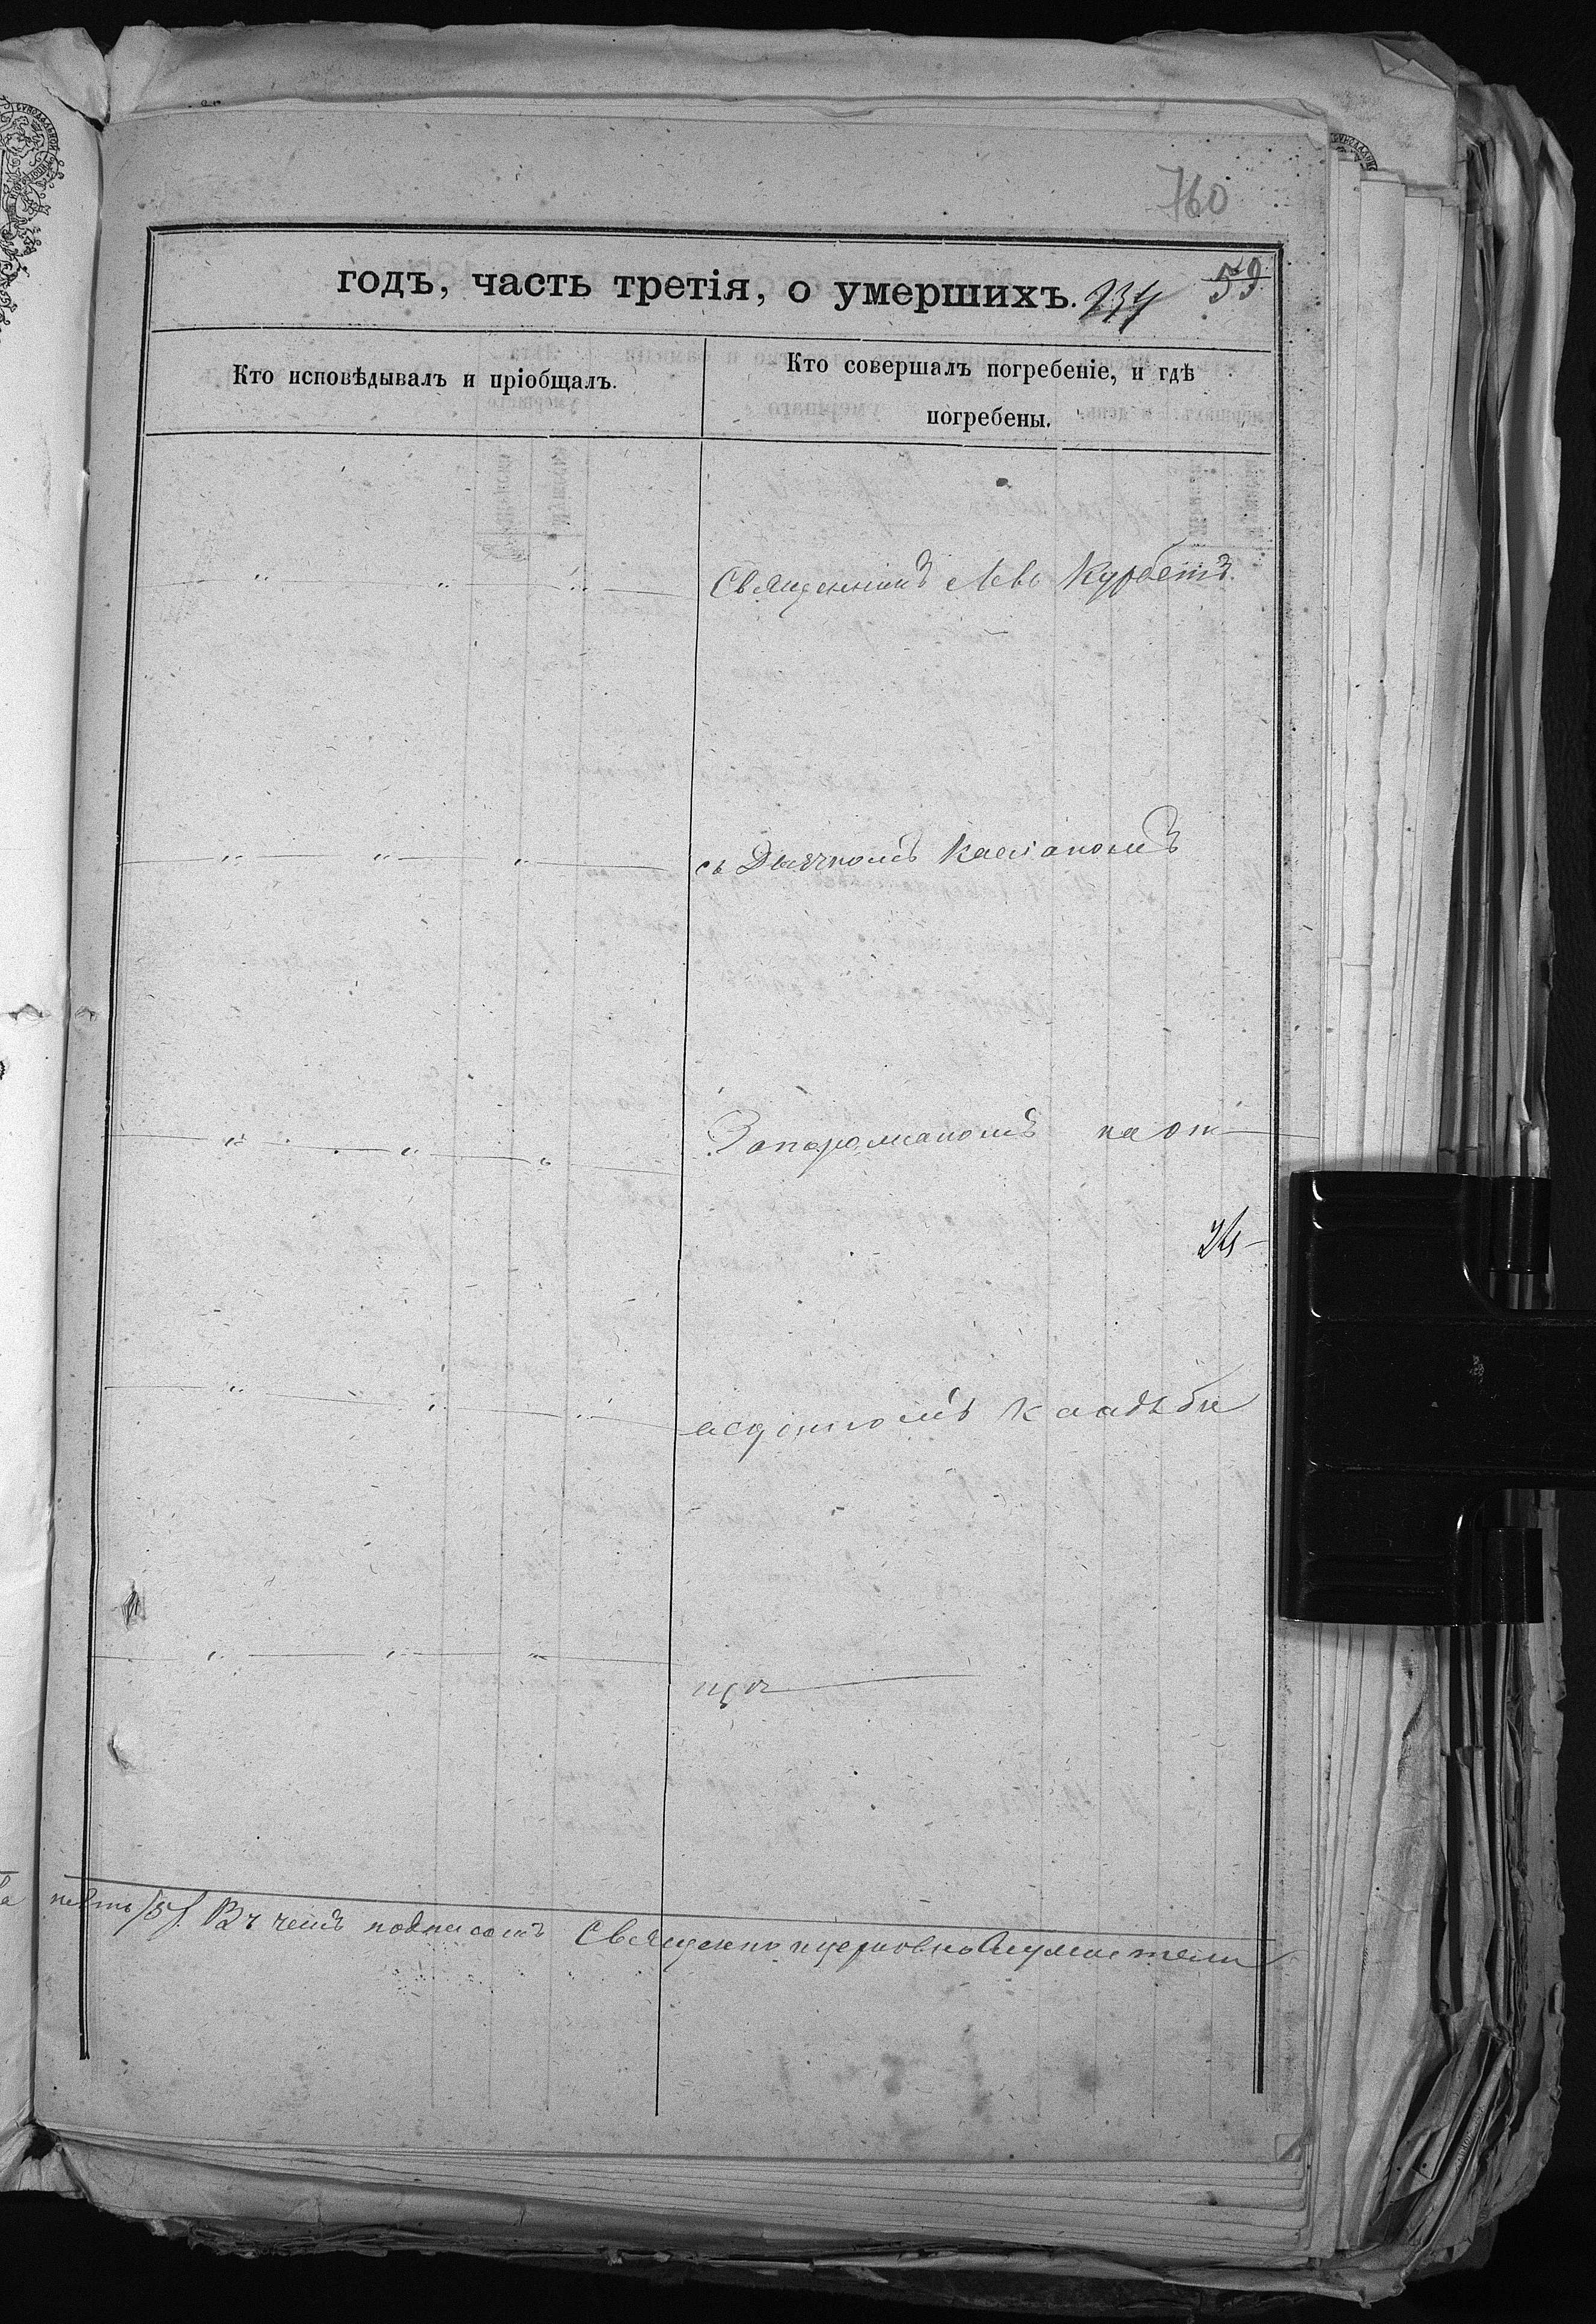 760
годъ, часть третія, о умершихъ. 234 59
Кто исповѣдывалъ и пріобщалъ.
Кто совершалъ погребеніе, и гдѣ
погребены.
Священникъ Левъ Курбетъ
съ Дьячкомъ Касіаномъ
Запорожаномъ на от-
асугонномъ кладьби
щѣ
пять /5/. Въ чемъ подписомъ Священноицерковнослужители